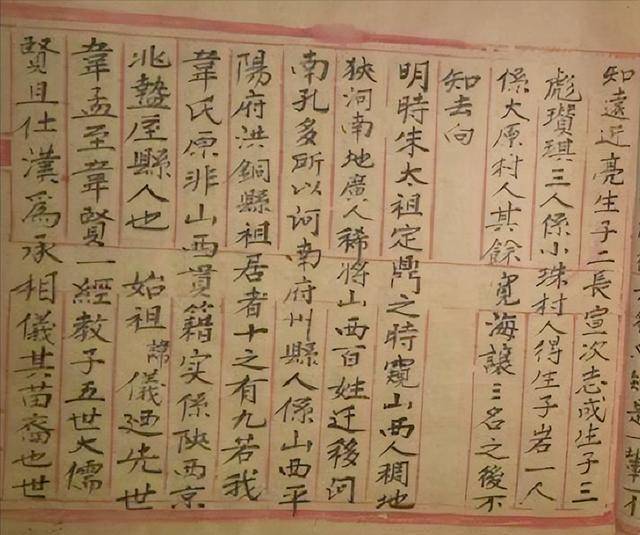 知遠近亮生子二長宣次志成生子三
彪瓚琪三人係小珠村人得生子岩一人
係大原村人其餘寬海讓三名之後不
知去向
明時朱太祖定鼎之時窺山西人稠地
狹河南地廣人稀將山西百姓迁移河
南孔多所以河南府州縣人係山西平
陽府洪銅縣祖居者十之有九若我
韋氏原非山西貫籍实係陝西京
兆盩厔縣人也 始祖諱儀廼先世
韋孟至韋賢一經教子五世大儒
賢且仕漢為承相儀其苗裔也世